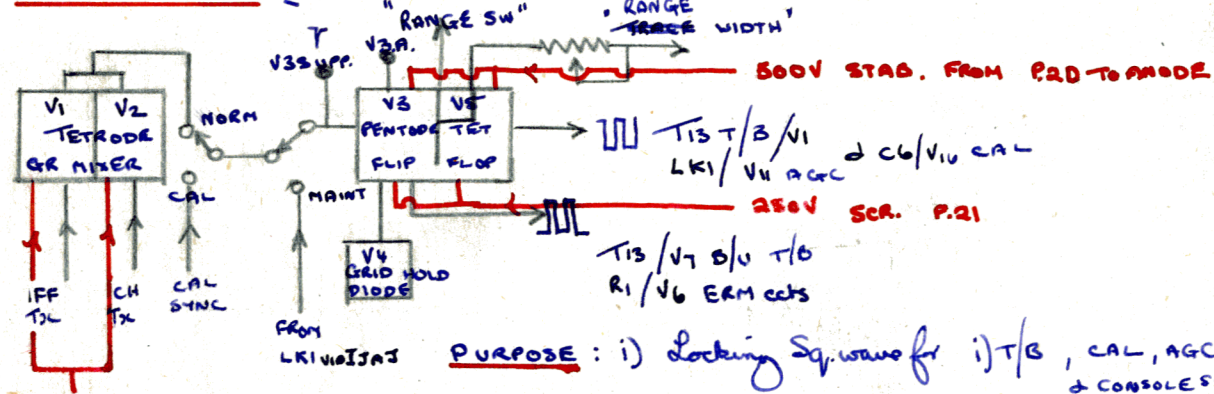 "RANGE SW"
"RANGE
TRACE WIDTH"
V3 SUPP.
V3A.
500V STAB. FROM P.20 TO ANODE
V1 V2
TETRODE
GR MIXER
NORM
CAL
MAINT
V3 V5
PENTODE TET
FLIP FLOP
T13 T/B/V1
LK1/V11 AGC & C6/V16 CAL
250V SCR. P.21
V4
GRID HOLD
DIODE
T13/V7 B/U T/B
R1/V6 ERM ccts
IFF
TX
CH
TX
CAL
SYNC
FROM
LK1
PURPOSE : i) Locking Sq. wave for i) T/B, CAL, AGC
& CONSOLES